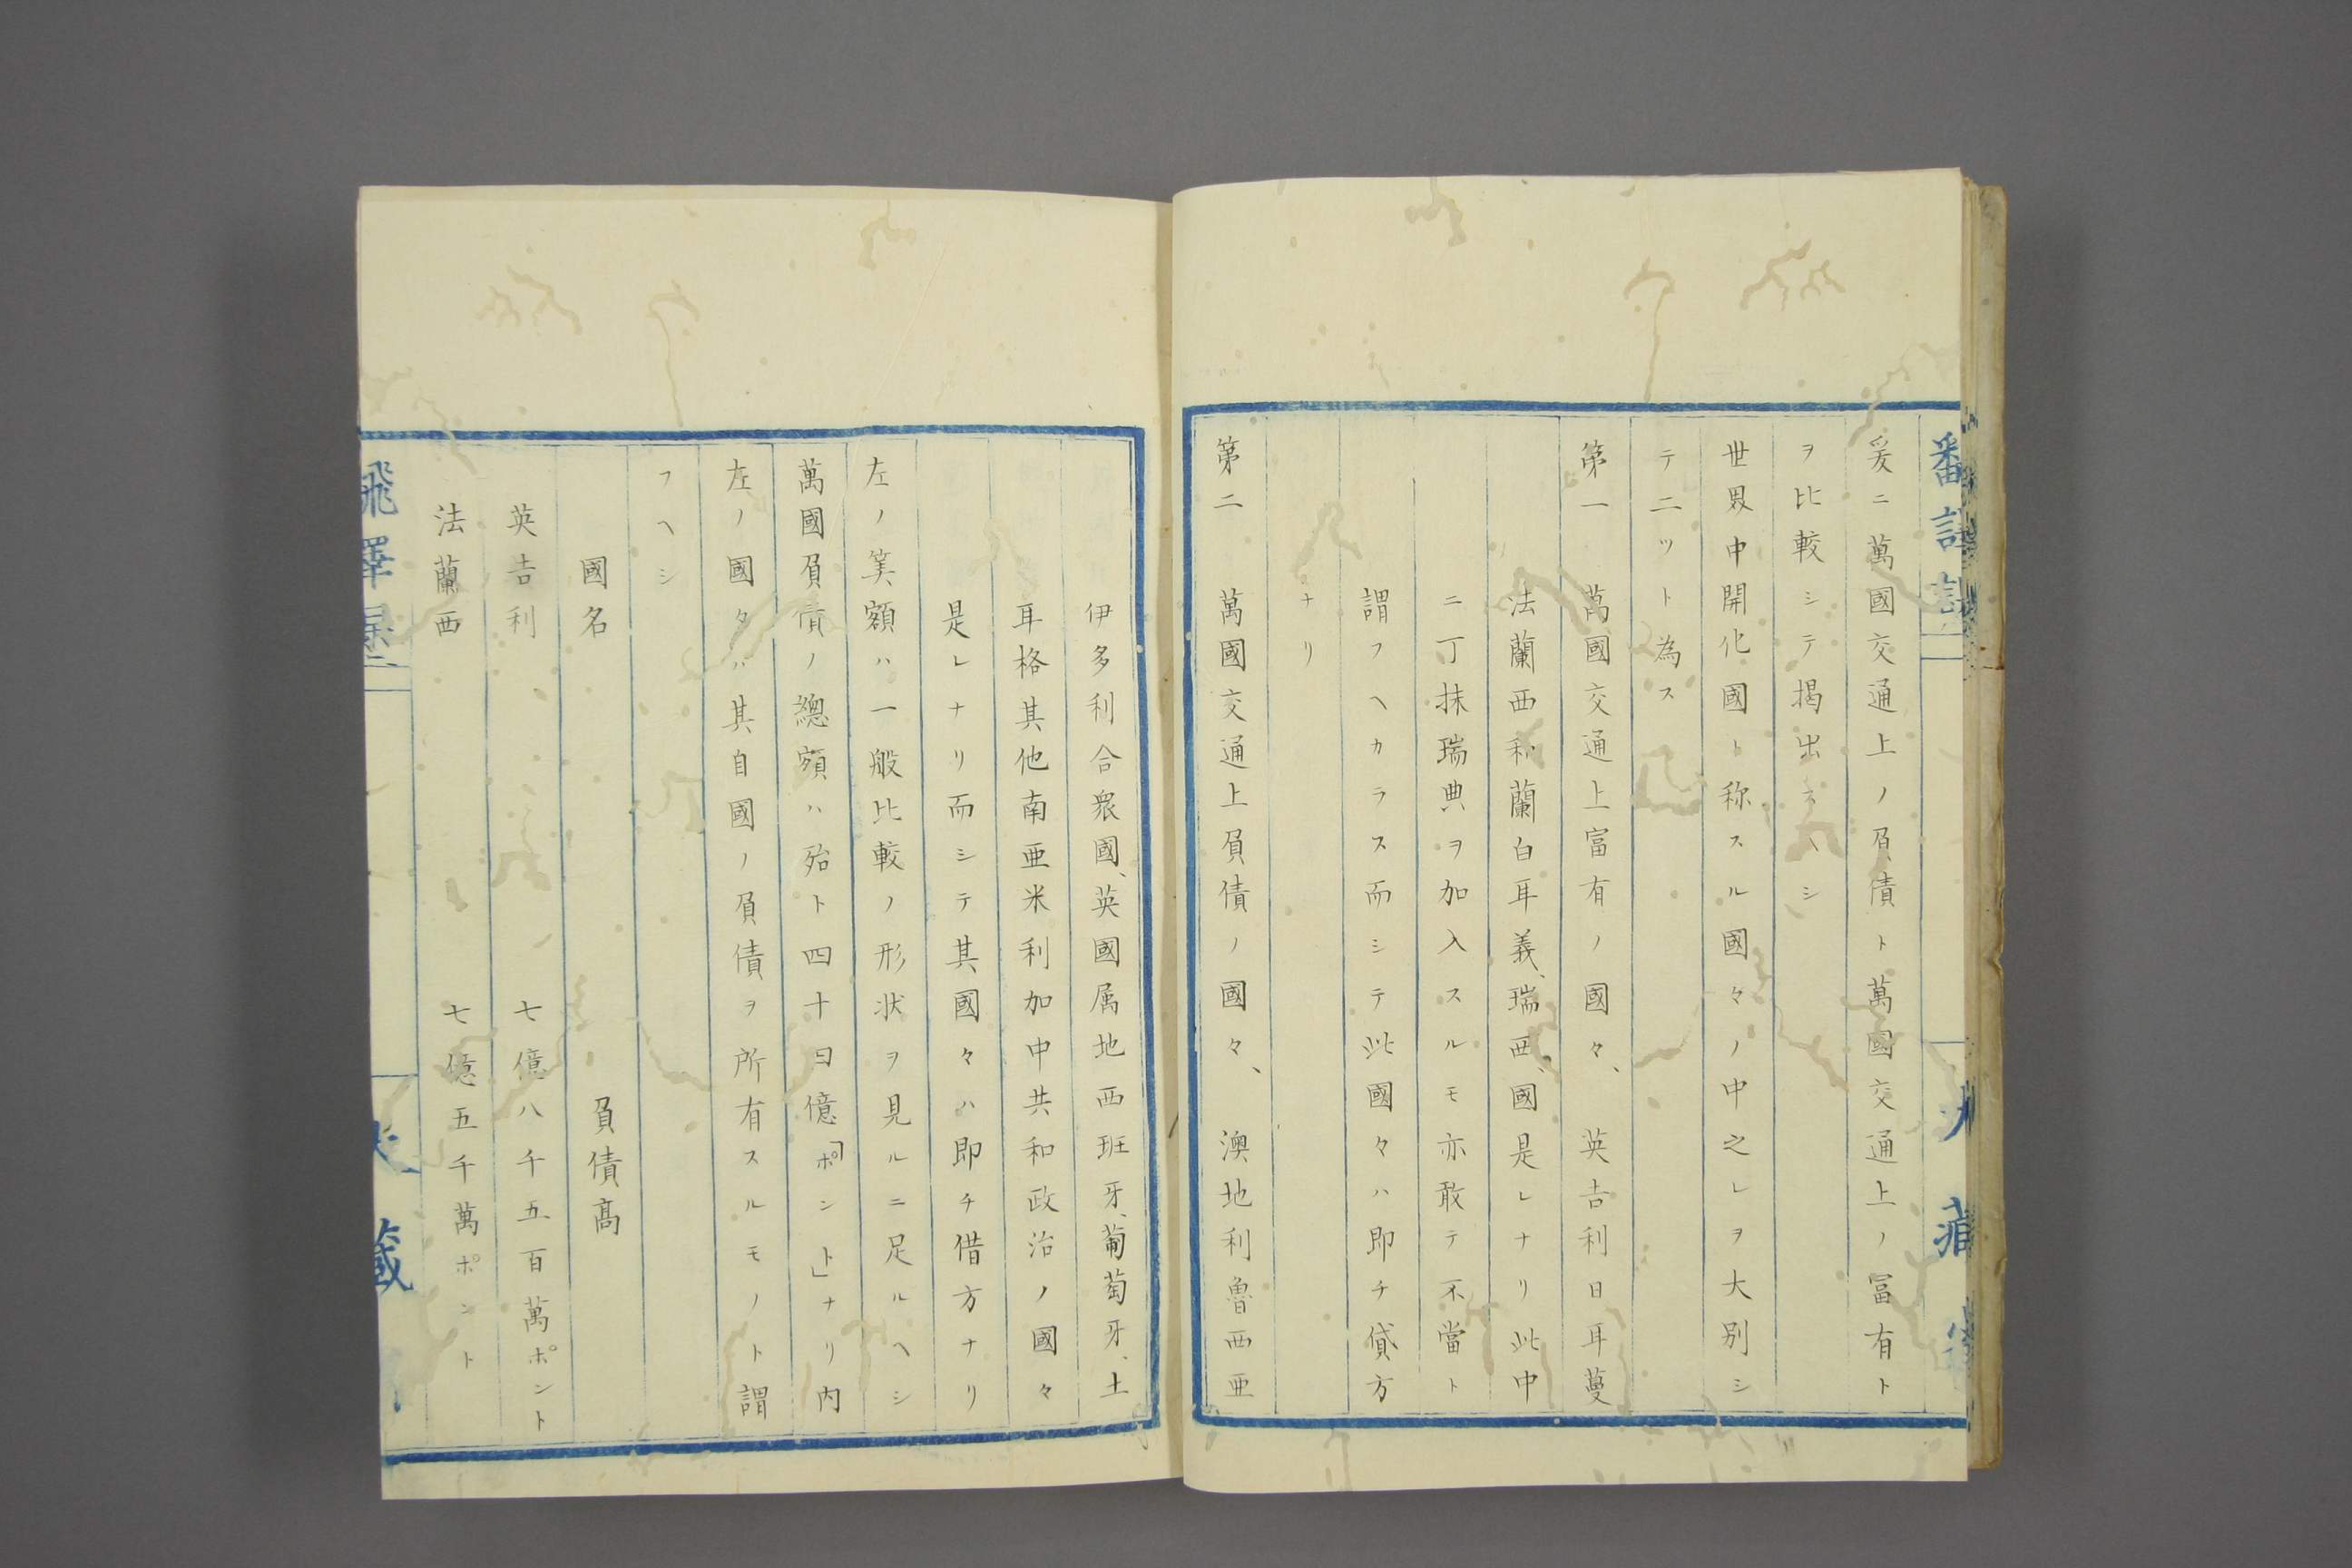 爰ニ萬國交通上ノ負債ト萬國交通上ノ冨有ト
ヲ比較シテ掲出スヘシ
世界中開化國ト称スル國々ノ中之レヲ大別シ
テ二ツト為ス
第一　萬國交通上富有ノ國々、　英吉利日耳蔓
法蘭西和蘭白耳義、瑞西、國是レナリ此中
ニ丁抹瑞典ヲ加入スルモ亦敢テ不當ト
謂フヘカラス而シテ此國々ハ即チ貸方
ナリ
第二　萬國交通上負債ノ國々、　澳地利魯西亜
伊多利合衆國、英國属地西班牙、葡萄牙、土
耳格其他南亜米利加中共和政治ノ國々
是レナリ而シテ其國々ハ即チ借方ナリ
左ノ筭額ハ一般比較ノ形状ヲ見ルニ足ルヘシ
萬國負債ノ總額ハ殆ト四十曰億「ポント」ナリ内
左ノ國々ハ其自國ノ負債ヲ所有スルモノト謂
フヘシ
國名　負債高
英吉利　七億八千五百萬ポント
法蘭西　七億五千萬ポント